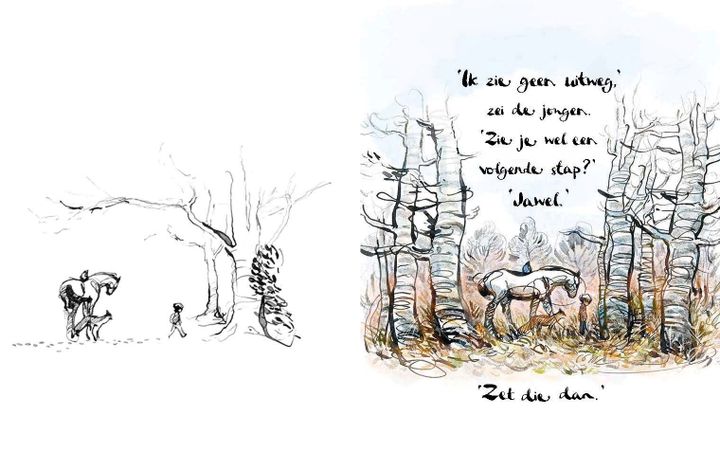 'Ik zie geen uitweg,'
zei de jongen.
'Zie je wel een
volgende stap?'
'Jawel.'
'Zet die dan.'